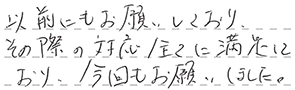 以前にもお願いしており、
その際の対応全てに満足して
おり、今回もお願いしました。